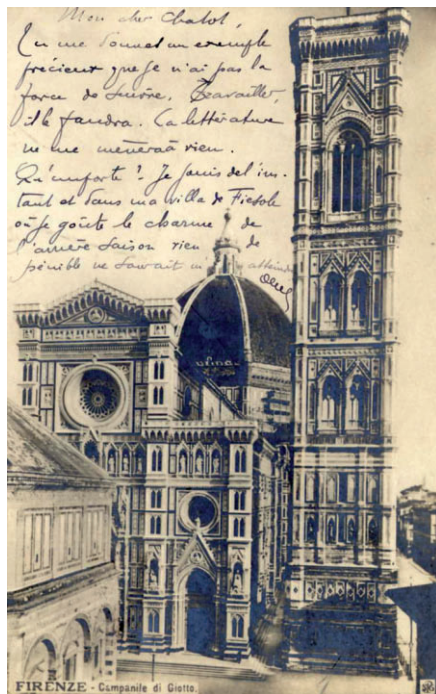 Mon cher Chatot,
Tu me donnes un exemple
précieux que je n'ai pas la
force de suivre. Travailler,
il le faudra. La littérature
ne me mènera à rien.
Qu'importe ! Je jouis de l'ins-
tant et dans ma villa de Fiesole
où je goûte le charme de
l'arrière saison rien de
pénible ne saurait m'atteindre
FIRENZE - Campanile di Giotto.